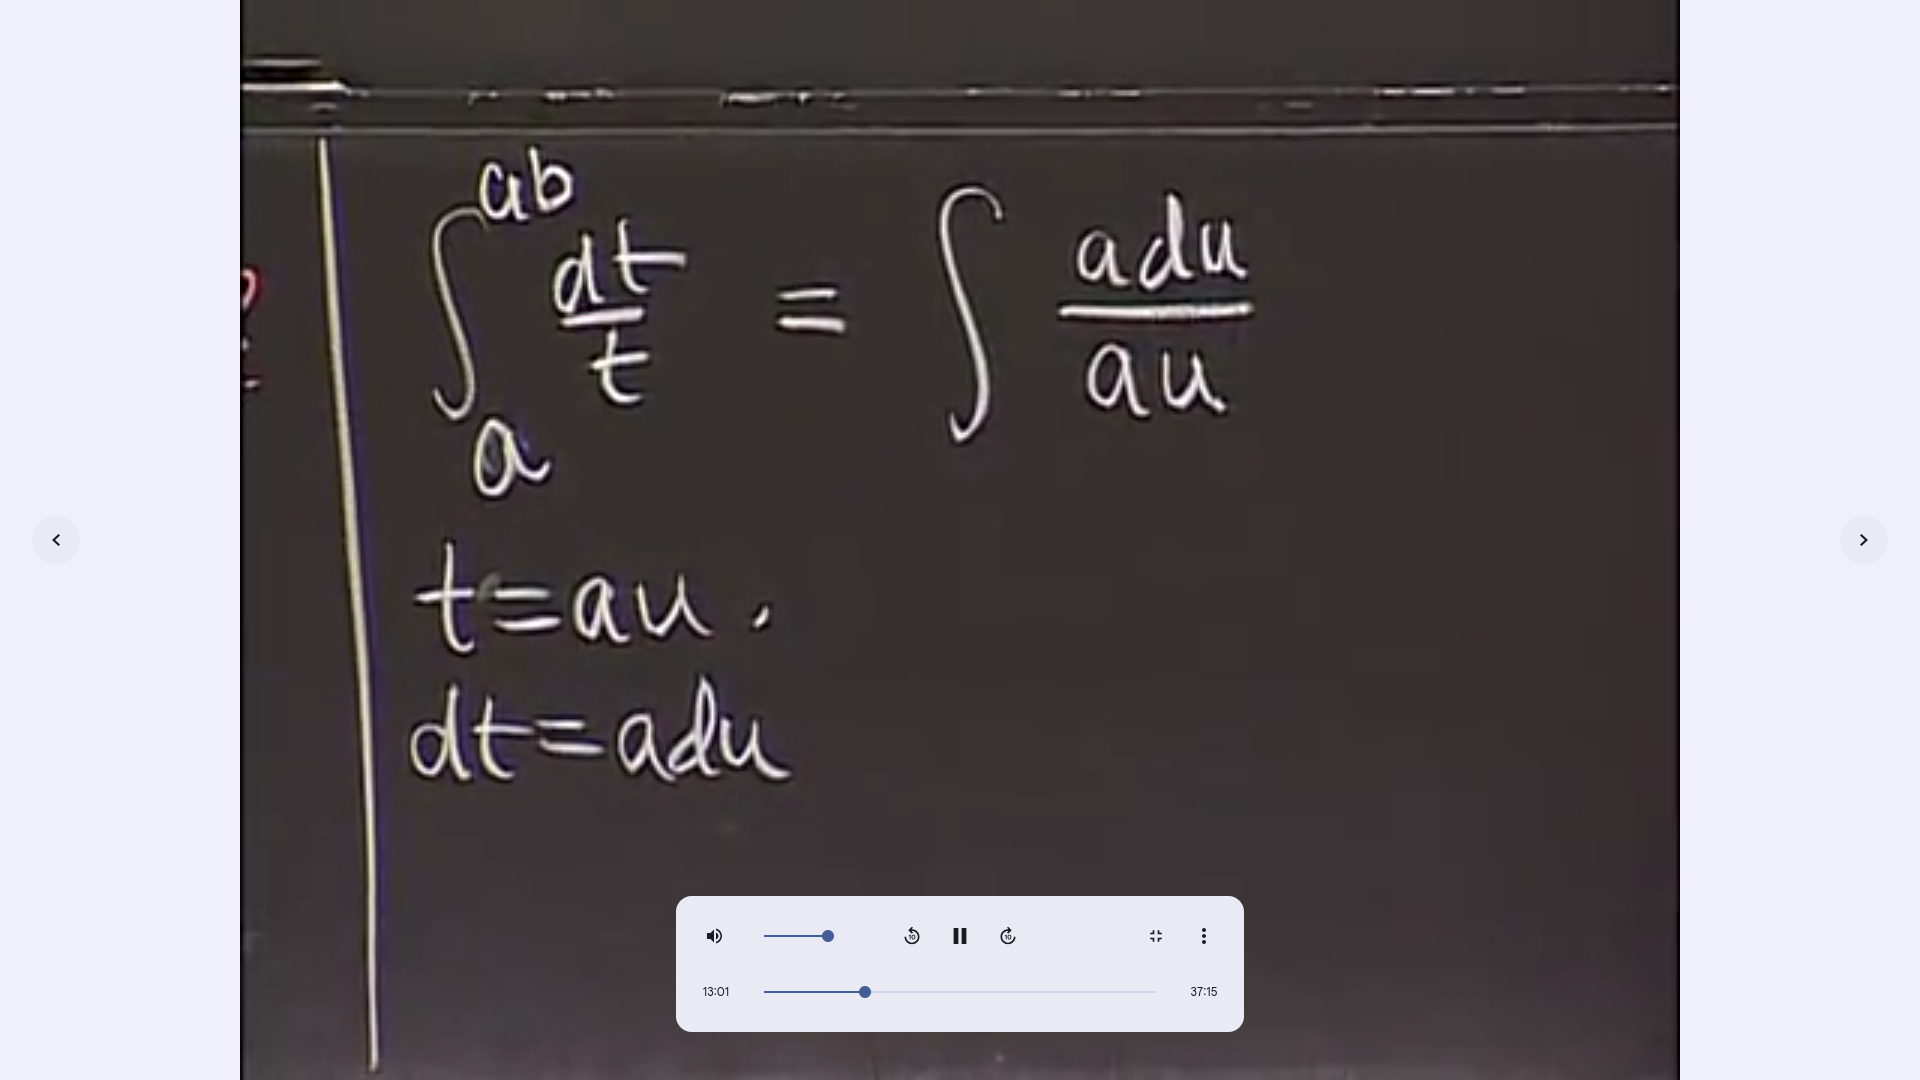 ∫_a^{ab} dt/t = ∫ adu/au
t=au.
dt=adu
13:01
37:15